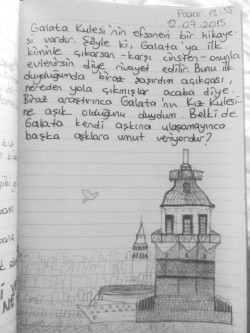 Pazar
12.07.2015
Galata Kulesi'nin efsanevi bir hikaye-
si vardır. Şöyle ki, Galata'ya ilk
kiminle çıkarsan -karşı cinsten- onunla
evlenirsin diye rivayet edilir. Bunu ilk
duyduğumda biraz şaşırdım açıkçası,
nereden yola çıkmışlar acaba diye.
Biraz araştırınca Galata'nın Kız Kulesi-
ne aşık olduğunu duydum. Belki de
Galata kendi aşkına ulaşamayınca
başka aşklara umut veriyordur?